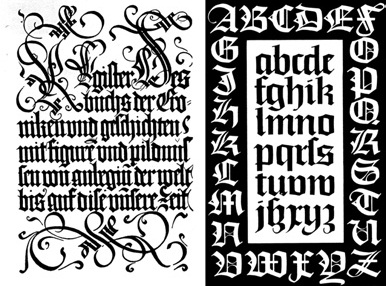 Regiſter Des
buchs der Cro
niken vnd geſchichten
mit figurē vnd pildnuſ
ſen von anbegin der welt
bis auf diſe vnſere zeit
ABCDEF
G
I
H
K
L
M
N
O
P
Q
R
S
T
U
VWXYZ
abcde
fghik
lmno
pqrſs
tuvw
jßxyz